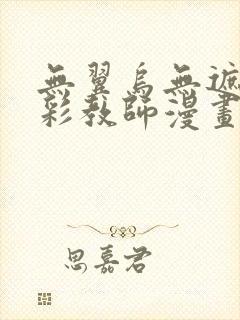 無翼烏無遮
彩教師漫畫
思嘉君